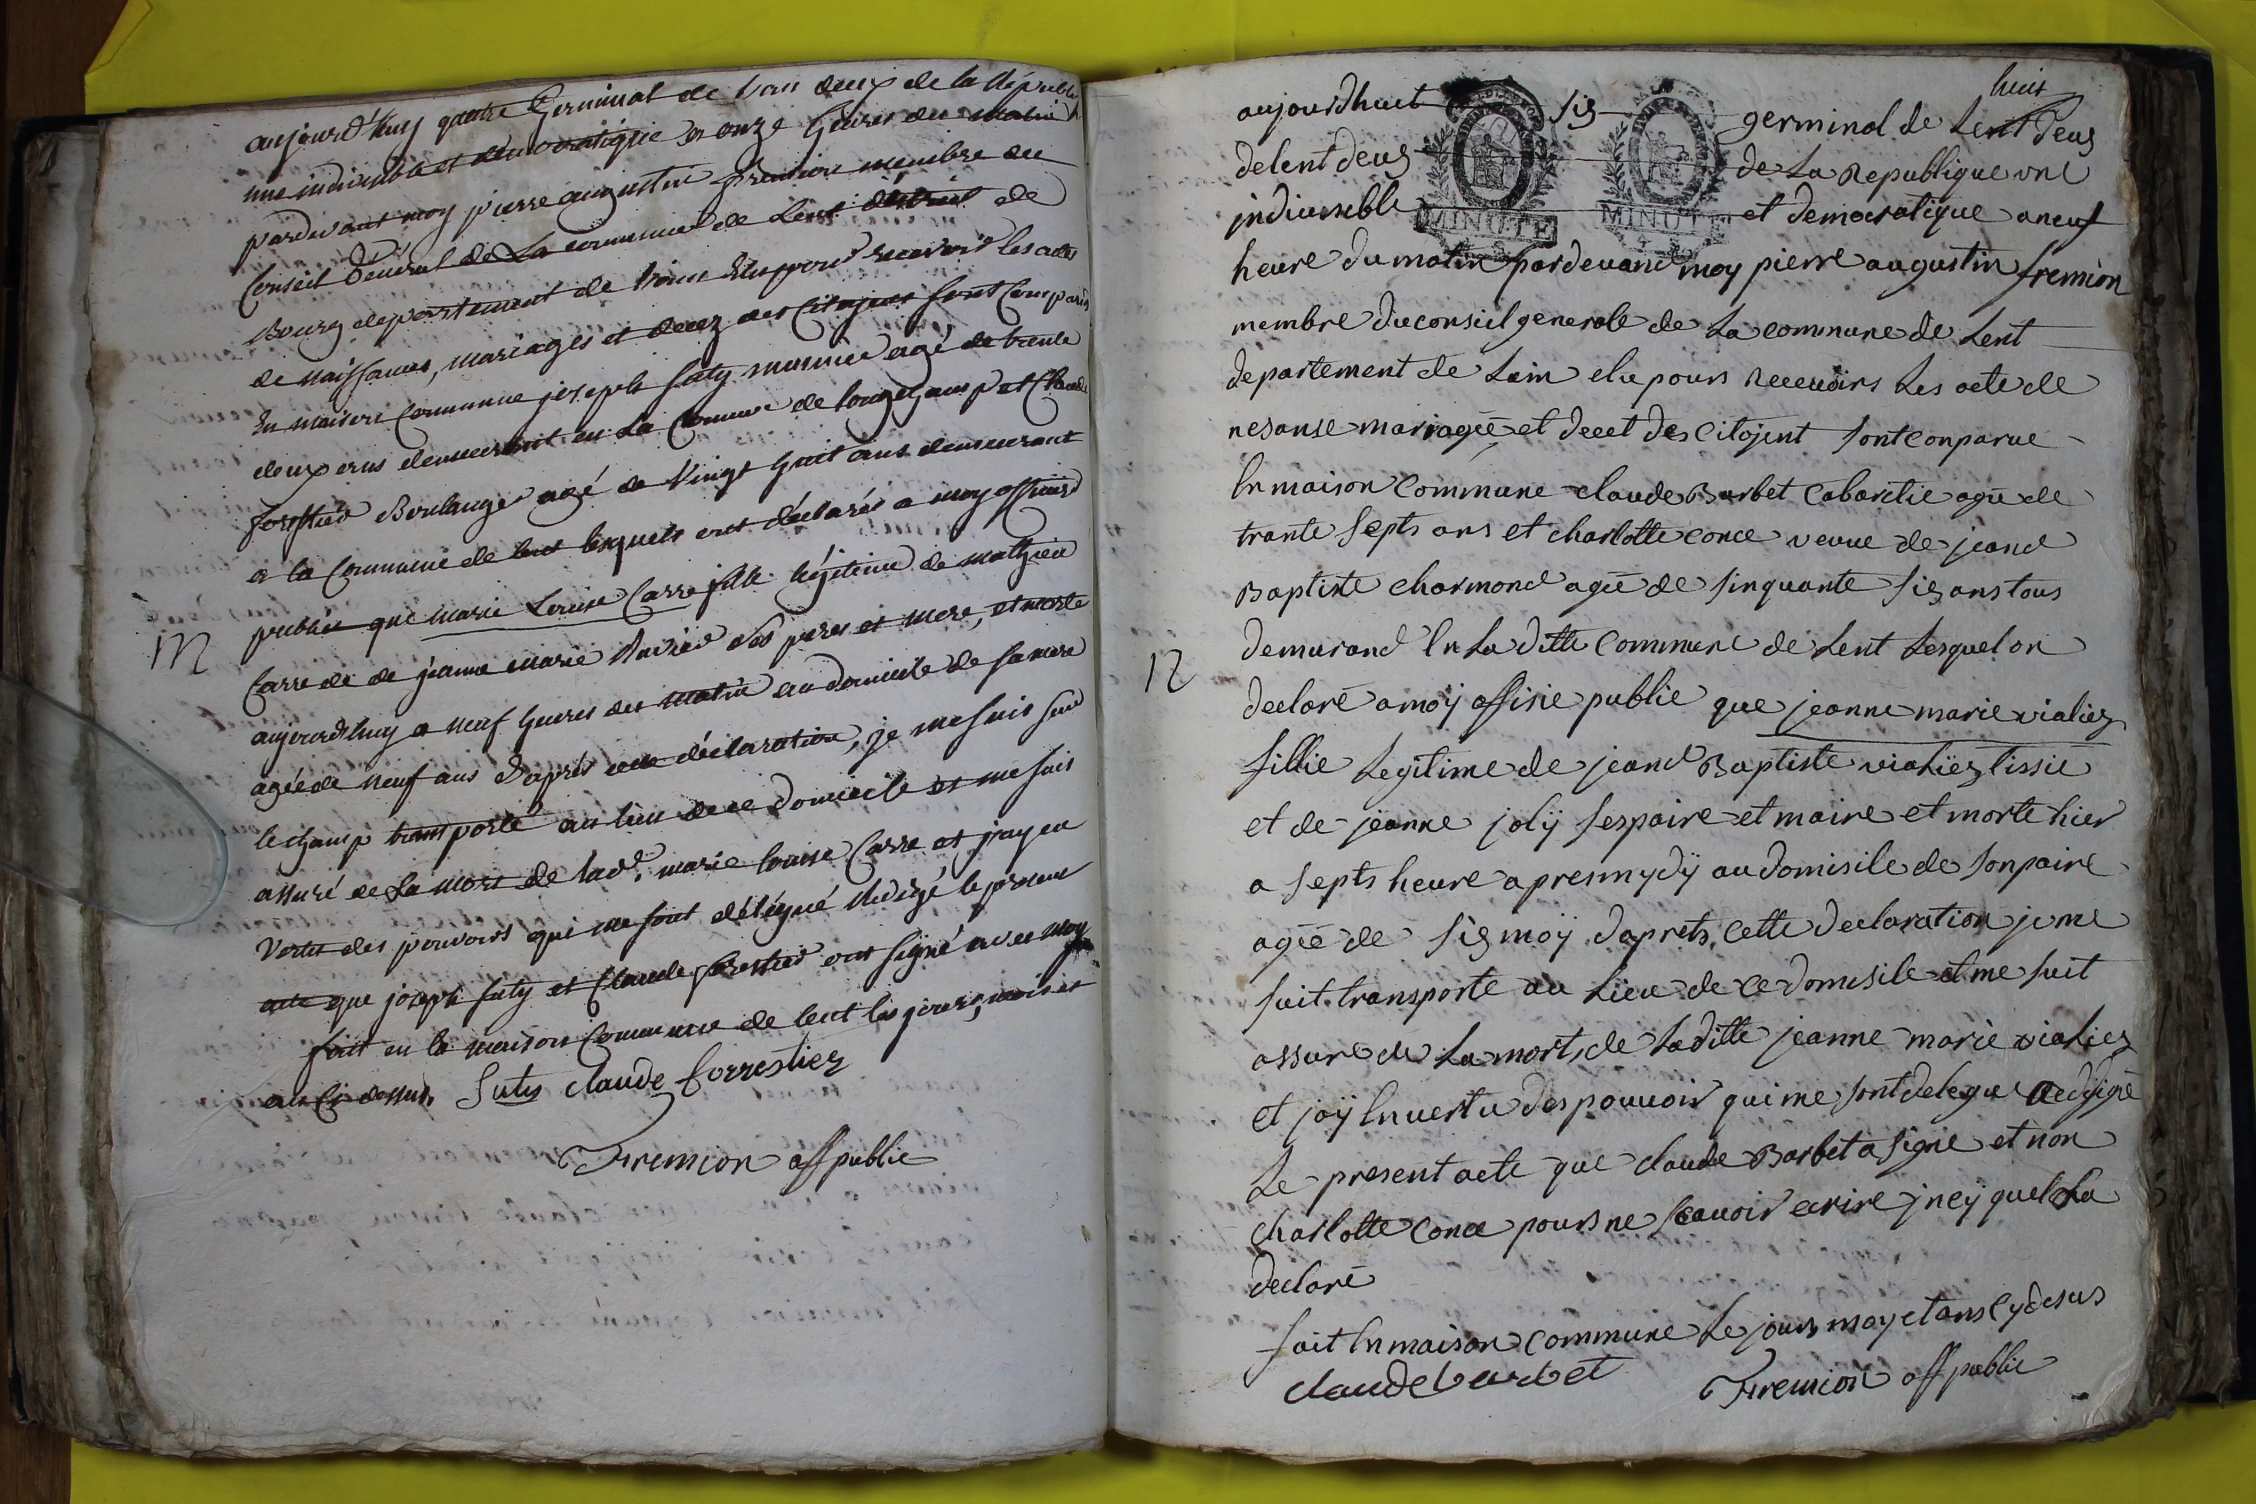 aujourd'huy quatre Germinal de l'an deux de la Républi
une indivisible et démocratique a onze heures du matin
pardevant moy pierre augustin fremion membre du
Conseil Général de La commune de Lent district de
Bourg departement de l'ain Elu pour recevoir les actes
de naissances, mariages et decez des Citoyens sont Comparus
En maison Commune joseph futy agé de trente
deux ans demeurant en La Commune de longchamp et Claude
forestier Boulanger agé de Vingt huit ans demeurant
a la Commune de lent lesquels ont déclarés a moy officier
public que marie Louise Carre fille légitime de mathieu
Carre de de jeanne marie ses peres et mere, et morte
aujourd'huy a neuf heures du matin au domicile de sa mere
agée de neuf ans d'après cette déclaration, je me suis sur
le champ transporté au lieu de ce domicile et me suis
assuré de La mort de lade. marie louise Carre et j'ay en
Vertu des pouvoirs qui me sont délégué Rédigé le présent
acte que joseph futy et Claude forestier ont signé avec moy
fait en la maison Commune de lent les jours, mois et
an Ci-dessus. futy claude forrestiez
Fremion off public
M
huis
aujourdhuit sis germinal de Lent deus
delent deus de La Republique une
indiuisible et democratique a neuf
MINUTE MINUTE
heure du matin pardevand moy pierre augustin fremion
membre du consiel generale de La commune de Lent
departement de Lain elu pours Recevoirs Les acte de
nesanse mariagëe et decet des Citojent sont conparue
En maison Commune claude Barbet Cabartie agée de
trante septs ans et charlotte conce veuve de jeand
Baptiste charmond agée de sinquante sis ans tous
demurand En La ditte Commune de Lent Lesquel on
declaré a moÿ offisie publie que jeanne marie vialiez
fillie Legitime de jeand Baptiste vialiez tissie
et de jeanne jolÿ ses paire et maire et morte hier
a septs heure apres mydÿ au domisile de son paire
agée de sis moÿ daprets cette declaration je me
suit transporte au Lieu de ce domisile et me suit
assure de La mort, de Laditte jeanne marie vialiez
et jaÿ En vertu des pouvoir qui me sont delegue Redigié
Le present acte que claude Barbet a signe et non
charlotte conce pours ne scauoir ecrire jney quel La
declaré
fait En maison commune Le jours moy et ans cy desus
claude barbet Fremion off public
12